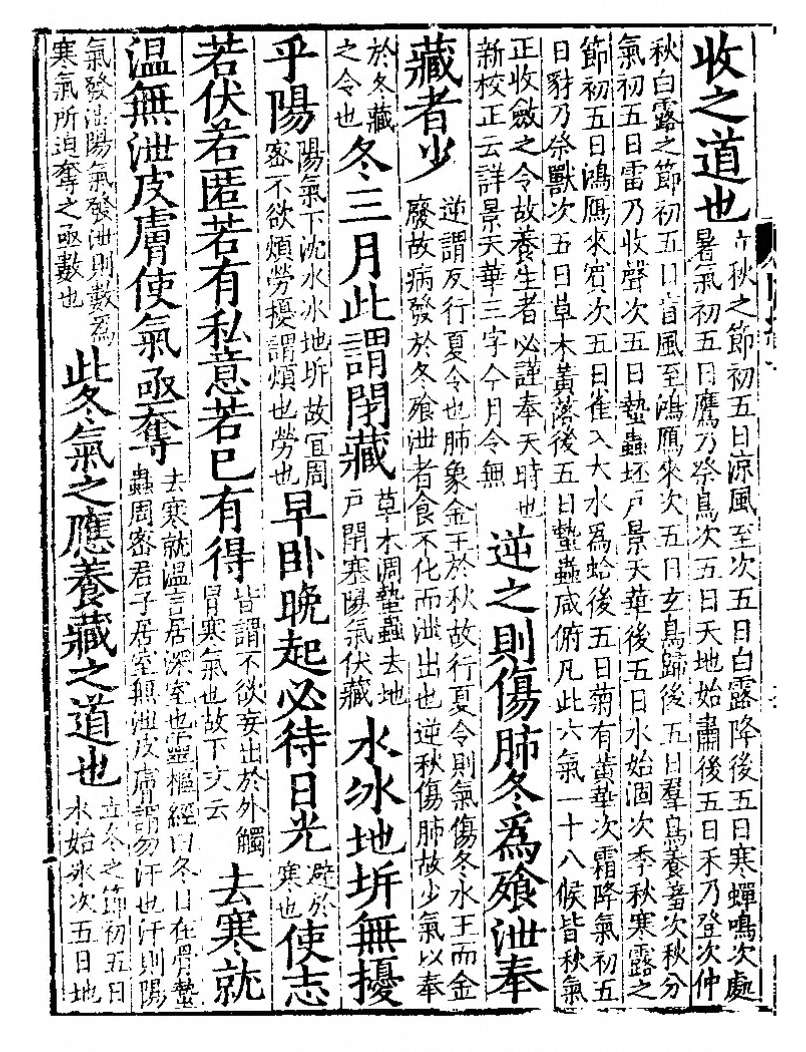 收之道也
立秋之節初五日涼風至次五日白露降後五日寒蟬鳴次處
暑氣初五日鷹乃祭鳥次五日天地始肅後五日禾乃登次仲
秋白露之節初五日盲風至鴻鴈來次五日玄鳥歸後五日羣鳥養羞次秋分
氣初五日雷乃收聲次五日蟄蟲坯戶景天華後五日水始涸次季秋寒露之
節初五日鴻鴈來賓次五日雀入大水爲蛤後五日菊有黃華次霜降氣初五
日豺乃祭獸次五日草木黃落後五日蟄蟲咸俯凡此六氣一十八候皆秋氣
正收斂之令故養生者必謹奉天時也
新校正云詳景天華三字今月令無
逆之則傷肺冬爲飱泄奉
藏者少
逆謂反行夏令也肺象金王於秋故行夏令則氣傷冬水王而金
廢故病發於冬飱泄者食不化而泄出也逆秋傷肺故少氣以奉
於冬藏
之令也
冬三月此謂閉藏
草木凋蟄蟲去地
戶閉塞陽氣伏藏
水冰地坼無擾
乎陽
陽氣下沈水冰地坼故宜周
密不欲煩勞擾謂煩也勞也
早臥晚起必待日光
避於
寒也
使志
若伏若匿若有私意若已有得
皆謂不欲妄出於外觸
冒寒氣也故下文云
去寒就
温無泄皮膚使氣亟奪
去寒就温言居深室也靈樞經曰冬日在骨蟄
蟲周密君子居室無泄皮膚謂勿汗也汗則陽
氣發泄陽氣發泄則數爲
寒氣所迫奪之亟數也
此冬氣之應養藏之道也
立冬之節初五日
水始冰次五日地